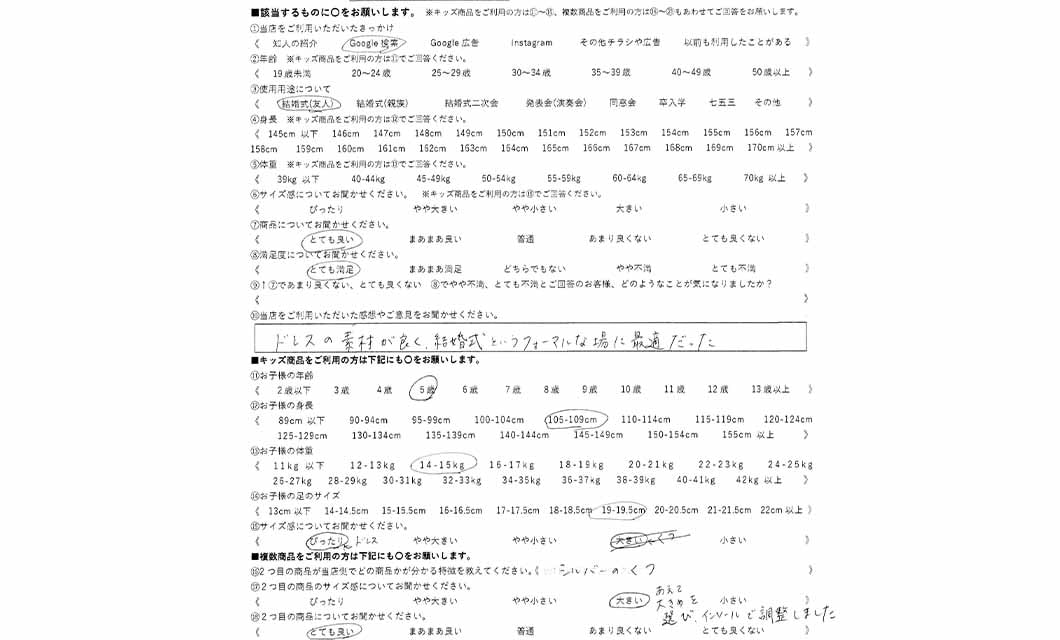 ■該当するものに〇をお願いします。 ※キッズ商品をご利用の方は⑪~⑮、複数商品をご利用の方は⑯~⑱もあわせてご回答をお願いします。
①当店をご利用いただいたきっかけ
《 知人の紹介 Google 検索 Google 広告 Instagram その他チラシや広告 以前も利用したことがある 》
②年齢 ※キッズ商品をご利用の方は⑪でご回答ください。
《 19歳未満 20~24歳 25~29歳 30~34歳 35~39歳 40~49歳 50歳以上 》
③使用用途について
《 結婚式(友人) 結婚式(親族) 結婚式二次会 発表会(演奏会) 同窓会 卒入学 七五三 その他 》
④身長 ※キッズ商品をご利用の方は⑫でご回答ください。
《 145cm 以下 146cm 147cm 148cm 149cm 150cm 151cm 152cm 153cm 154cm 155cm 156cm 157cm
158cm 159cm 160cm 161cm 162cm 163cm 164cm 165cm 166cm 167cm 168cm 169cm 170cm以上 》
⑤体重 ※キッズ商品をご利用の方は⑬でご回答ください。
《 39kg 以下 40-44kg 45-49kg 50-54kg 55-59kg 60-64kg 65-69kg 70kg 以上 》
⑥サイズ感についてお聞かせください。 ※キッズ商品をご利用の方は⑮でご回答ください。
《 ぴったり やや大きい やや小さい 大きい 小さい 》
⑦商品についてお聞かせください。
《 とても良い まあまあ良い 普通 あまり良くない とても良くない 》
⑧満足度についてお聞かせください。
《 とても満足 まあまあ満足 どちらでもない やや不満 とても不満 》
⑨↑⑦であまり良くない、とても良くない ⑧でやや不満、とても不満とご回答のお客様、どのようなことが気になりましたか?
《 》
⑩当店をご利用いただいた感想やご意見をお聞かせください。
ドレスの素材が良く、結婚式というフォーマルな場に最適だった
■キッズ商品をご利用の方は下記にも〇をお願いします。
⑪お子様の年齢
《 2歳以下 3歳 4歳 5歳 6歳 7歳 8歳 9歳 10歳 11歳 12歳 13歳以上 》
⑫お子様の身長
《 89cm 以下 90-94cm 95-99cm 100-104cm 105-109cm 110-114cm 115-119cm 120-124cm
125-129cm 130-134cm 135-139cm 140-144cm 145-149cm 150-154cm 155cm 以上 》
⑬お子様の体重
《 11kg 以下 12-13kg 14-15kg 16-17kg 18-19kg 20-21kg 22-23kg 24-25kg
26-27kg 28-29kg 30-31kg 32-33kg 34-35kg 36-37kg 38-39kg 40-41kg 42kg 以上 》
⑭お子様の足のサイズ
《 13cm 以下 14-14.5cm 15-15.5cm 16-16.5cm 17-17.5cm 18-18.5cm 19-19.5cm 20-20.5cm 21-21.5cm 22cm 以上 》
⑮サイズ感についてお聞かせください。
《 ぴったり ドレス やや大きい やや小さい 大きい くつ 小さい 》
■複数商品をご利用の方は下記にも〇をお願いします。
⑯2つ目の商品が当店側でどの商品かが分かる特徴を教えてください。《 シルバーのくつ 》
⑰2つ目の商品のサイズ感についてお聞かせください。
《 ぴったり やや大きい やや小さい 大きい あえて大きめを選び、インソールで調整しました 小さい 》
⑱2つ目の商品についてお聞かせください。
《 とても良い まあまあ良い 普通 あまり良くない とても良くない 》